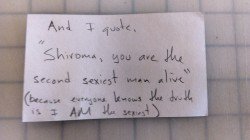 And I quote,
"Shiroma, you are the
second sexiest man alive"
(because everyone knows the truth
is I AM the sexiest)